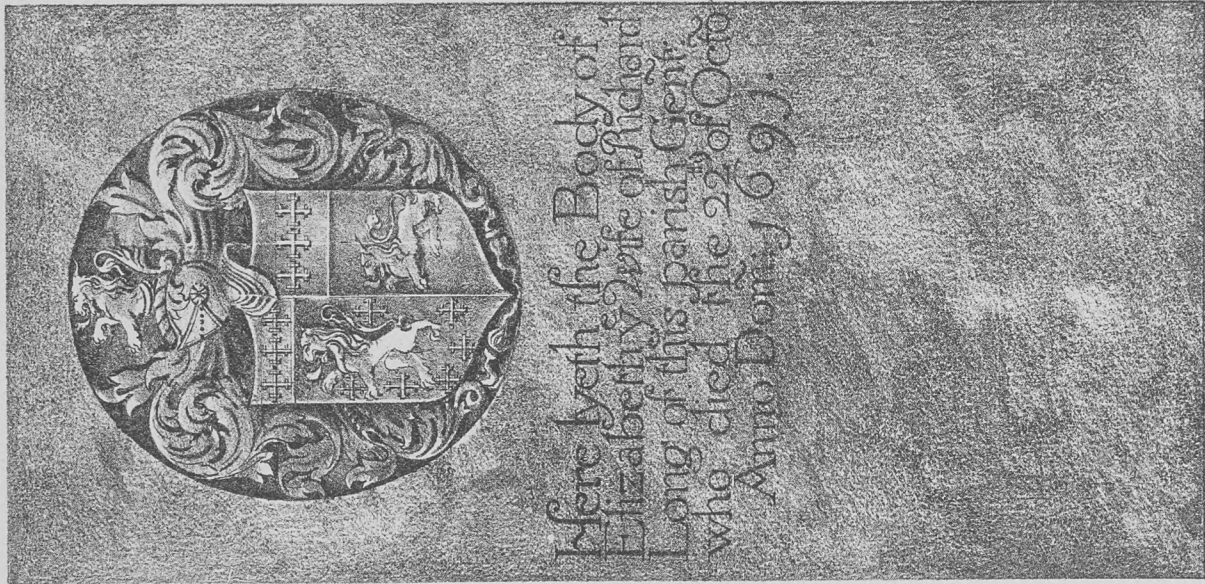 Here lyeth the Body of
Elizabeth yᵉ Wife of Richard
Long of this parish Genᵗ.
who died the 22ᵗʰ of Octõ
Anno Dom̃: 1691.